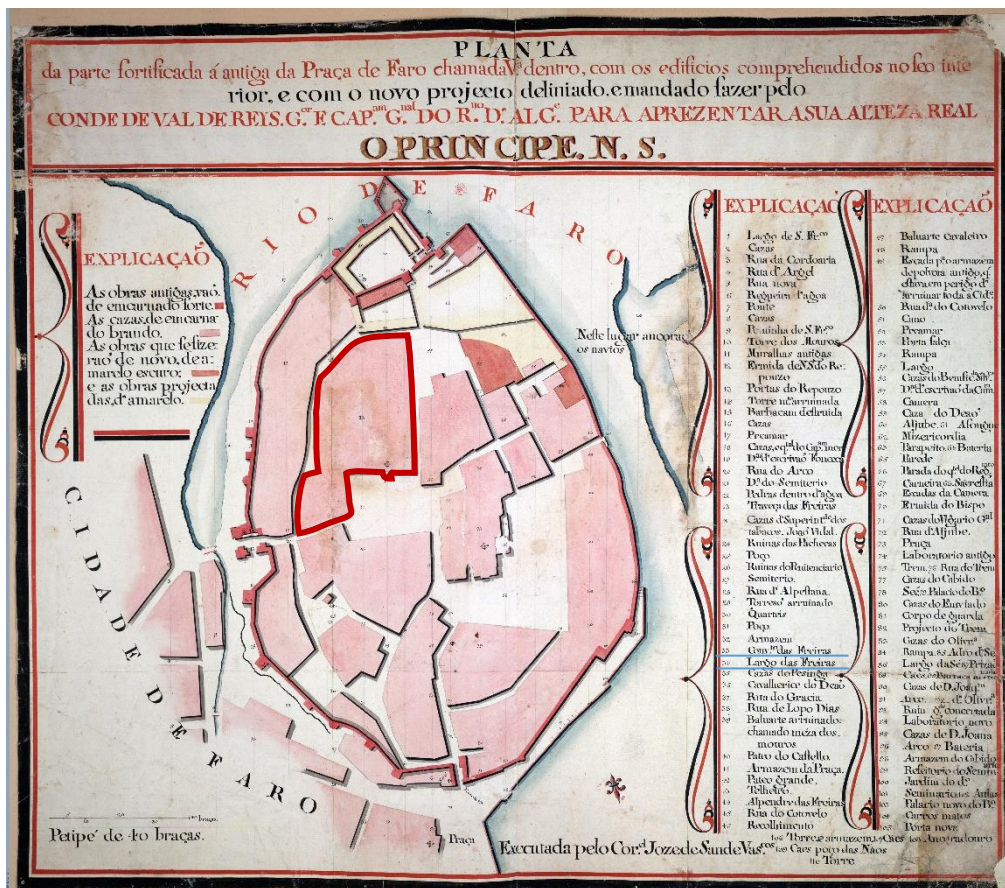 PLANTA
da parte fortificada á antiga da Praça de Faro chamada Vᵃ dentro, com os edificios comprehendidos no seo inte
rior, e com o novo projecto deliniado, e mandado fazer pelo
CONDE DE VAL DE REYS. G.ᵒʳ E CAP.ᵃᵐ G.ⁿᵃˡ DO R.ⁿᵒ D. ALG.ᵉ PARA APREZENTAR A SUA ALTEZA REAL
O PRINCIPE. N. S.
RIO DE FARO
EXPLICAÇAÕ
As obras antigas, vaõ
de encarnado forte.
As cazas, de encarna
do brando.
As obras que se fize
raõ de novo, de a-
marelo escuro;
e as obras projecta
das, d'amarelo.
Neste lugar ancoraõ
os navios
CIDADE DE FARO
Petipé de 40 braças.
Praça
Executada pelo Cor.ˡ Joze de Sande Vas.ᶜᵒˢ
EXPLICAÇAÕ
1 Largo de S. Fr.ᶜᵒ
2 Cazas
3 Rua da Cordoaria
4 Rua d'Argel
5 Rua nova
6 Regueira d'agoa
7 Ponte
8 Cazas
9 Pontinha de S. Fr.ᶜᵒ
10 Torre dos Mouros
11 Muralhas antigas
12 Ermida de N. S. do Re-
pouzo
13 Portas do Repouzo
14 Torre arruinada
15 Barbacam destruida
16 Cazas
17 Preamar
20 Rua do Arco
21 D.ᵃ do Semiterio
22 Pedras dentro d'agoa
23 Traveça das Freiras
tabacos. Joaõ Vidal.
24 Ruinas das Pachecas
25 Poço
26 Ruinas do Penitenciario
27 Semiterio.
28 Rua d'Alpestana.
29 Torreaõ arruinado
30 Quarteis
31 Poço
32 Armazem
33 Conv.ᵗᵒ das Freiras
34 Largo das Freiras
35 Cazas do Pesinga
36 Cavalherice do Deaõ
37 Rua do Gracia
38 Rua de Lopo Dias
39 Baluarte arruinado
chamado meza dos
mouros
40 Pateo do Castello.
41 Armazem da Praça.
42 Pateo grande.
43 Telheiro.
44 Alpendre das Freiras
45 Rua do Cotovelo
46 Recolhimento
EXPLICAÇAÕ
47 Baluarte Cavaleiro
48 Rampa
49 Escada p.ᵃ o armazem
de polvora antigo, q.
estava em perigo d'
arruinar toda a Cid.ᵉ
50 Rua d.ᵒ do Cotovelo
51 Cano
52 Preamar
53 Porta falça
54 Rampa
55 Largo
58 Camera
59 Caza do Deaõ
60 Aljube. 61 Asougue
62 Mizericordia
63 Parapeito. 64 Bateria
65 Parede
67 Carneira 68 Sacrestia
69 Escadas da Camera
70 Ermida do Bispo
71 Cazas do Vigario G.ᵃˡ
72 Rua d'Aljube.
73 Praça
74 Laboratorio antigo
75 Trem. 76 Rua do Trem
77 Cazas do Cabido
78 Sé. 79 Palacio do B.ᵒ
80 Cazas do Enviado
81 Corpo de guarda
82 Projecto do Trem
83 Cazas do Oliv.ʳᵃ
84 Rampa. 85 Adro d'Sé
90 Cazas de D. Joaq.ᵐ
91 Arco. 92 d.ᵒ Oliv.ʳᵃ
94 Laboratorio novo
95 Cazas de D. Joana
96 Arco 97 Bateria
98 Armazem do Cabido
99 Refeitorio do Semin.ᵃʳⁱᵒ
100 Jardim do d.ᵒ
101 Seminario 102 Aulas
103 Palacio novo do B.ᵒ
104 Curros matos
105 Porta nova
106 Torre, e armazem. 107 Caes 108 Ancoradouro
109 Caes poço das Naos
110 Torre